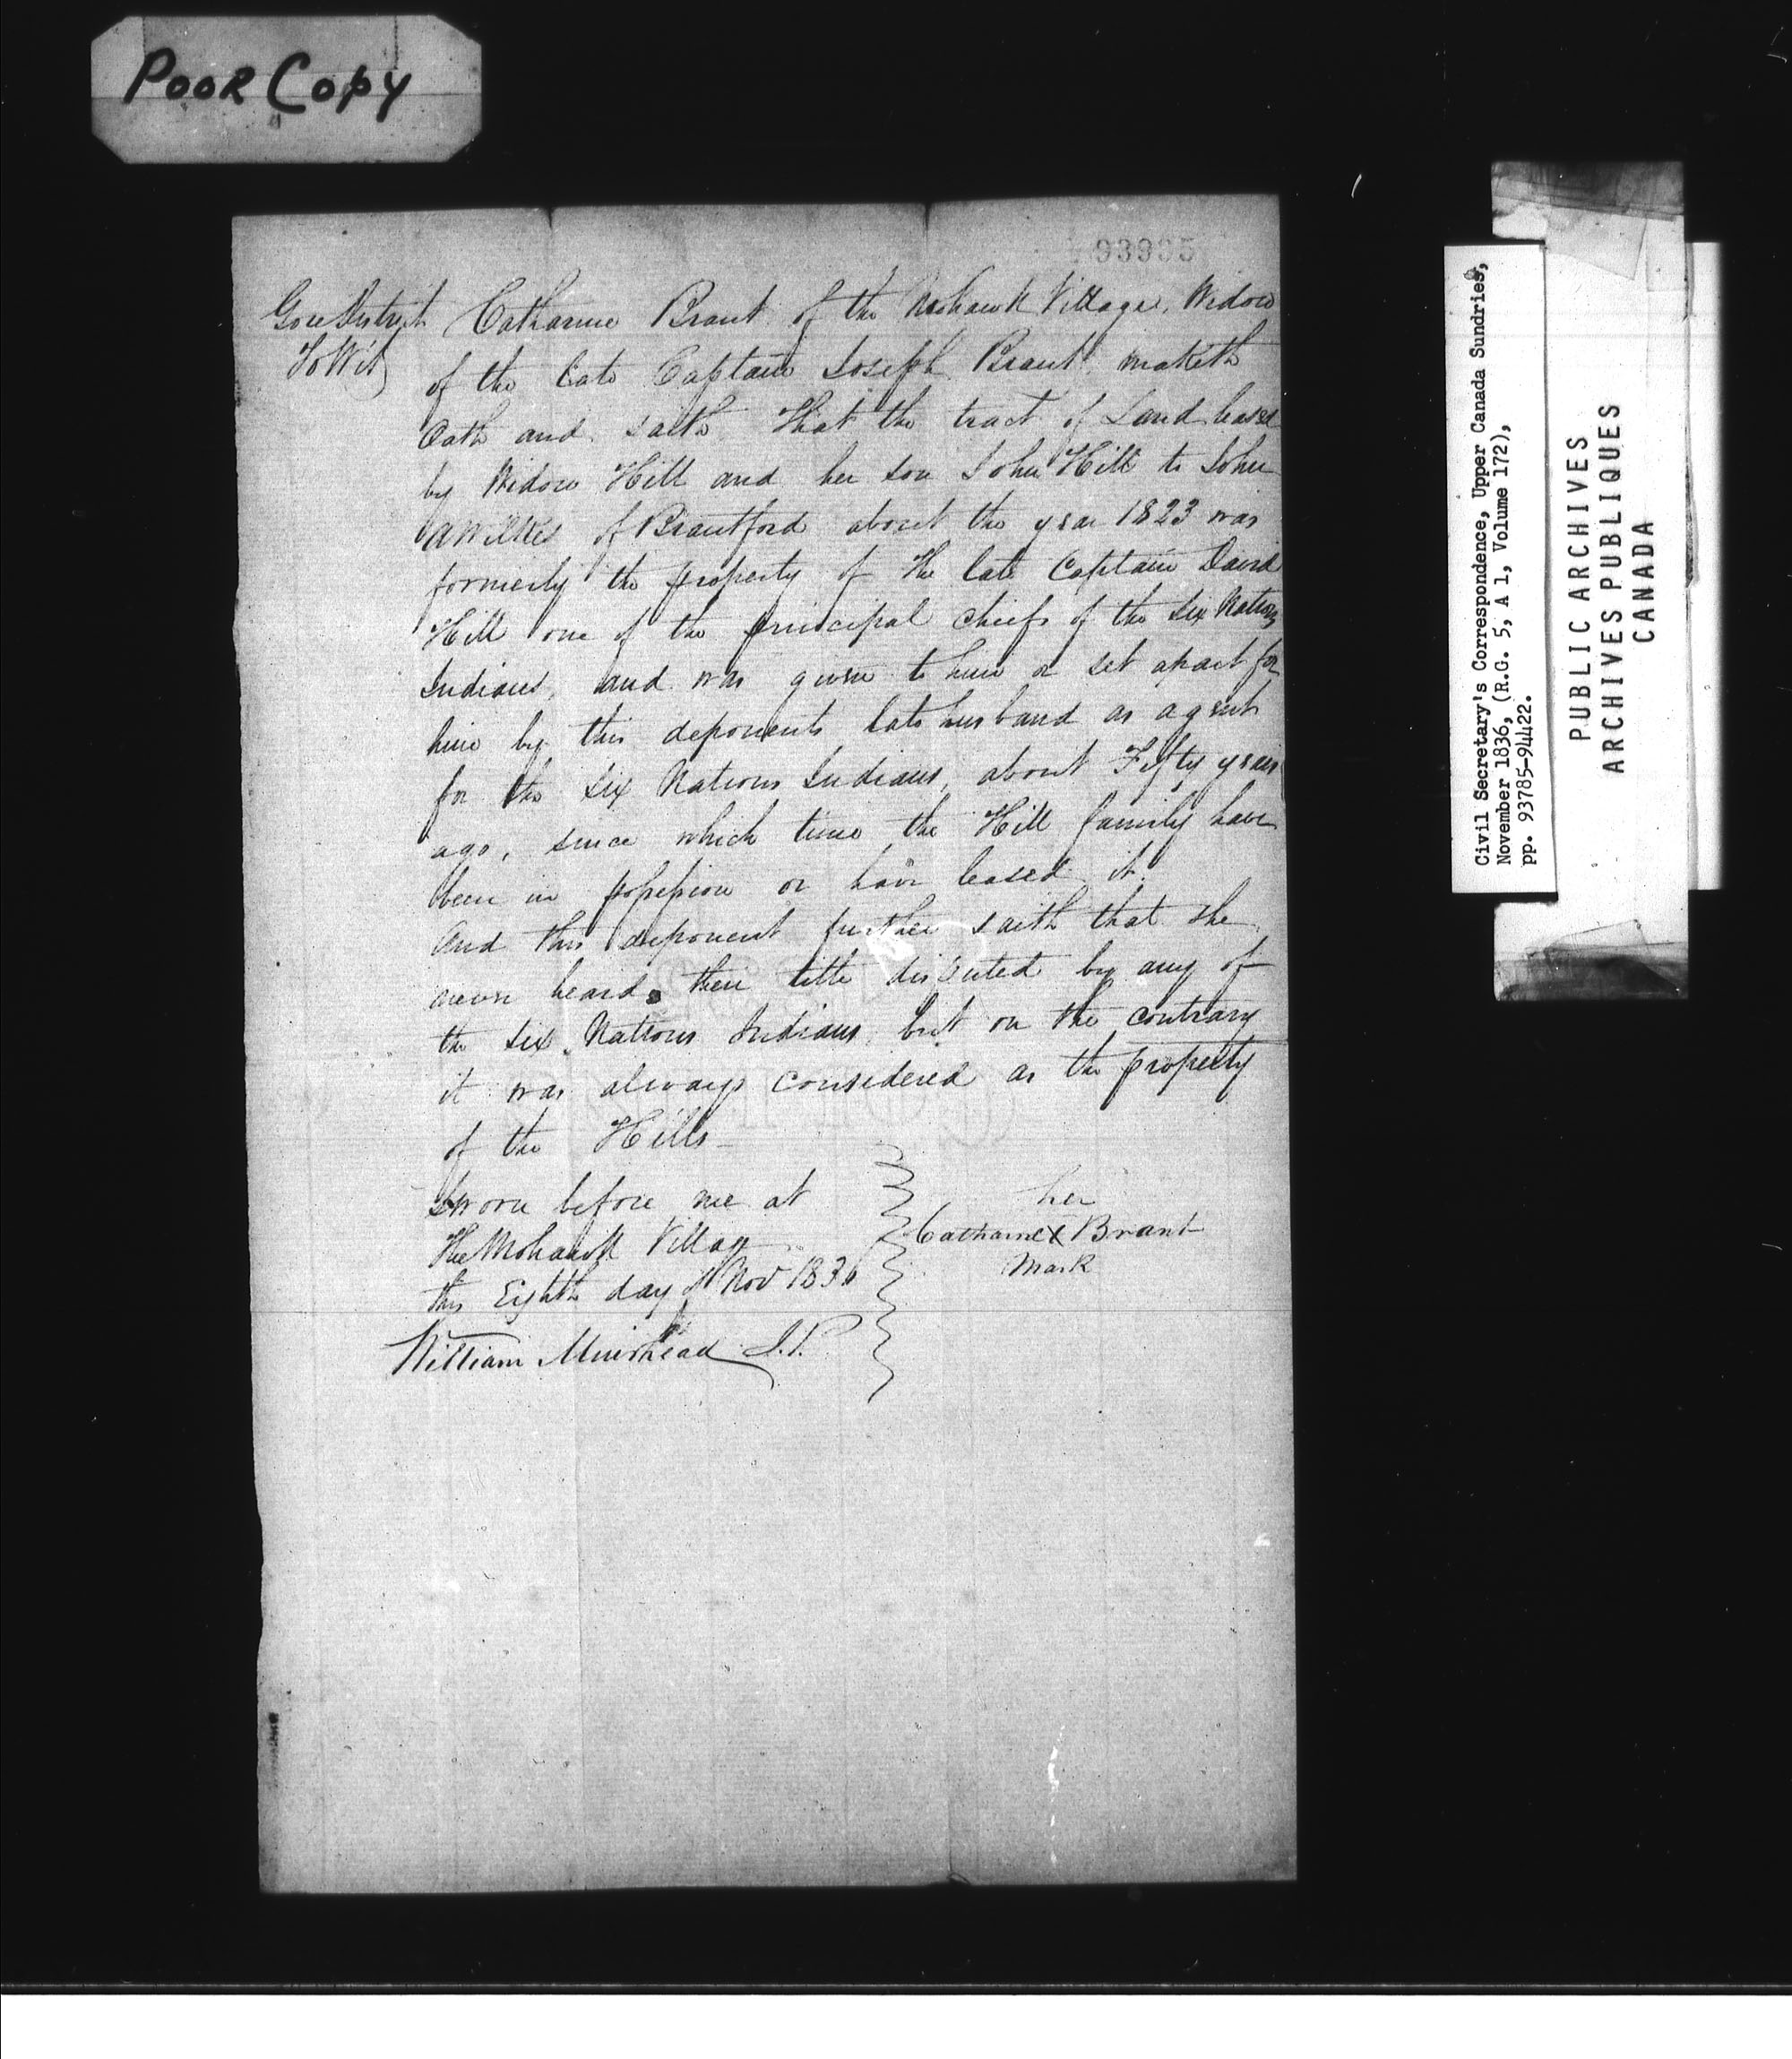 Poor Copy
93935
Gore District Catharine Brant of the Mohawk Village, Widow
To Wit) of the late Captain Joseph Brant, maketh
Oath and saith That the tract of Land leased
by Widow Hill and her son John Hill to John
A Wilkes of Brantford about the year 1823 was
formerly the property of the late Captain David
Hill one of the principal chiefs of the Six Nations
Indians, and was given to him or set apart for
him by this deponents late husband as agent
for the Six Nations Indians, about Fifty years
ago, since which time the Hill family have
been in possession or have leased it.
And this deponent further saith that she
never heard their title disputed by any of
the Six Nations Indians, but on the contrary
it was always considered as the property
of the Hills
Sworn before me at
The Mohawk Village
this Eighth day of Nov 1836
William Muirhead J.P.
her
Catharine X Brant
Mark
Civil Secretary's Correspondence, Upper Canada Sundries,
November 1836, (R.G. 5, A 1, Volume 172),
pp. 93785-94422.
PUBLIC ARCHIVES
ARCHIVES PUBLIQUES
CANADA